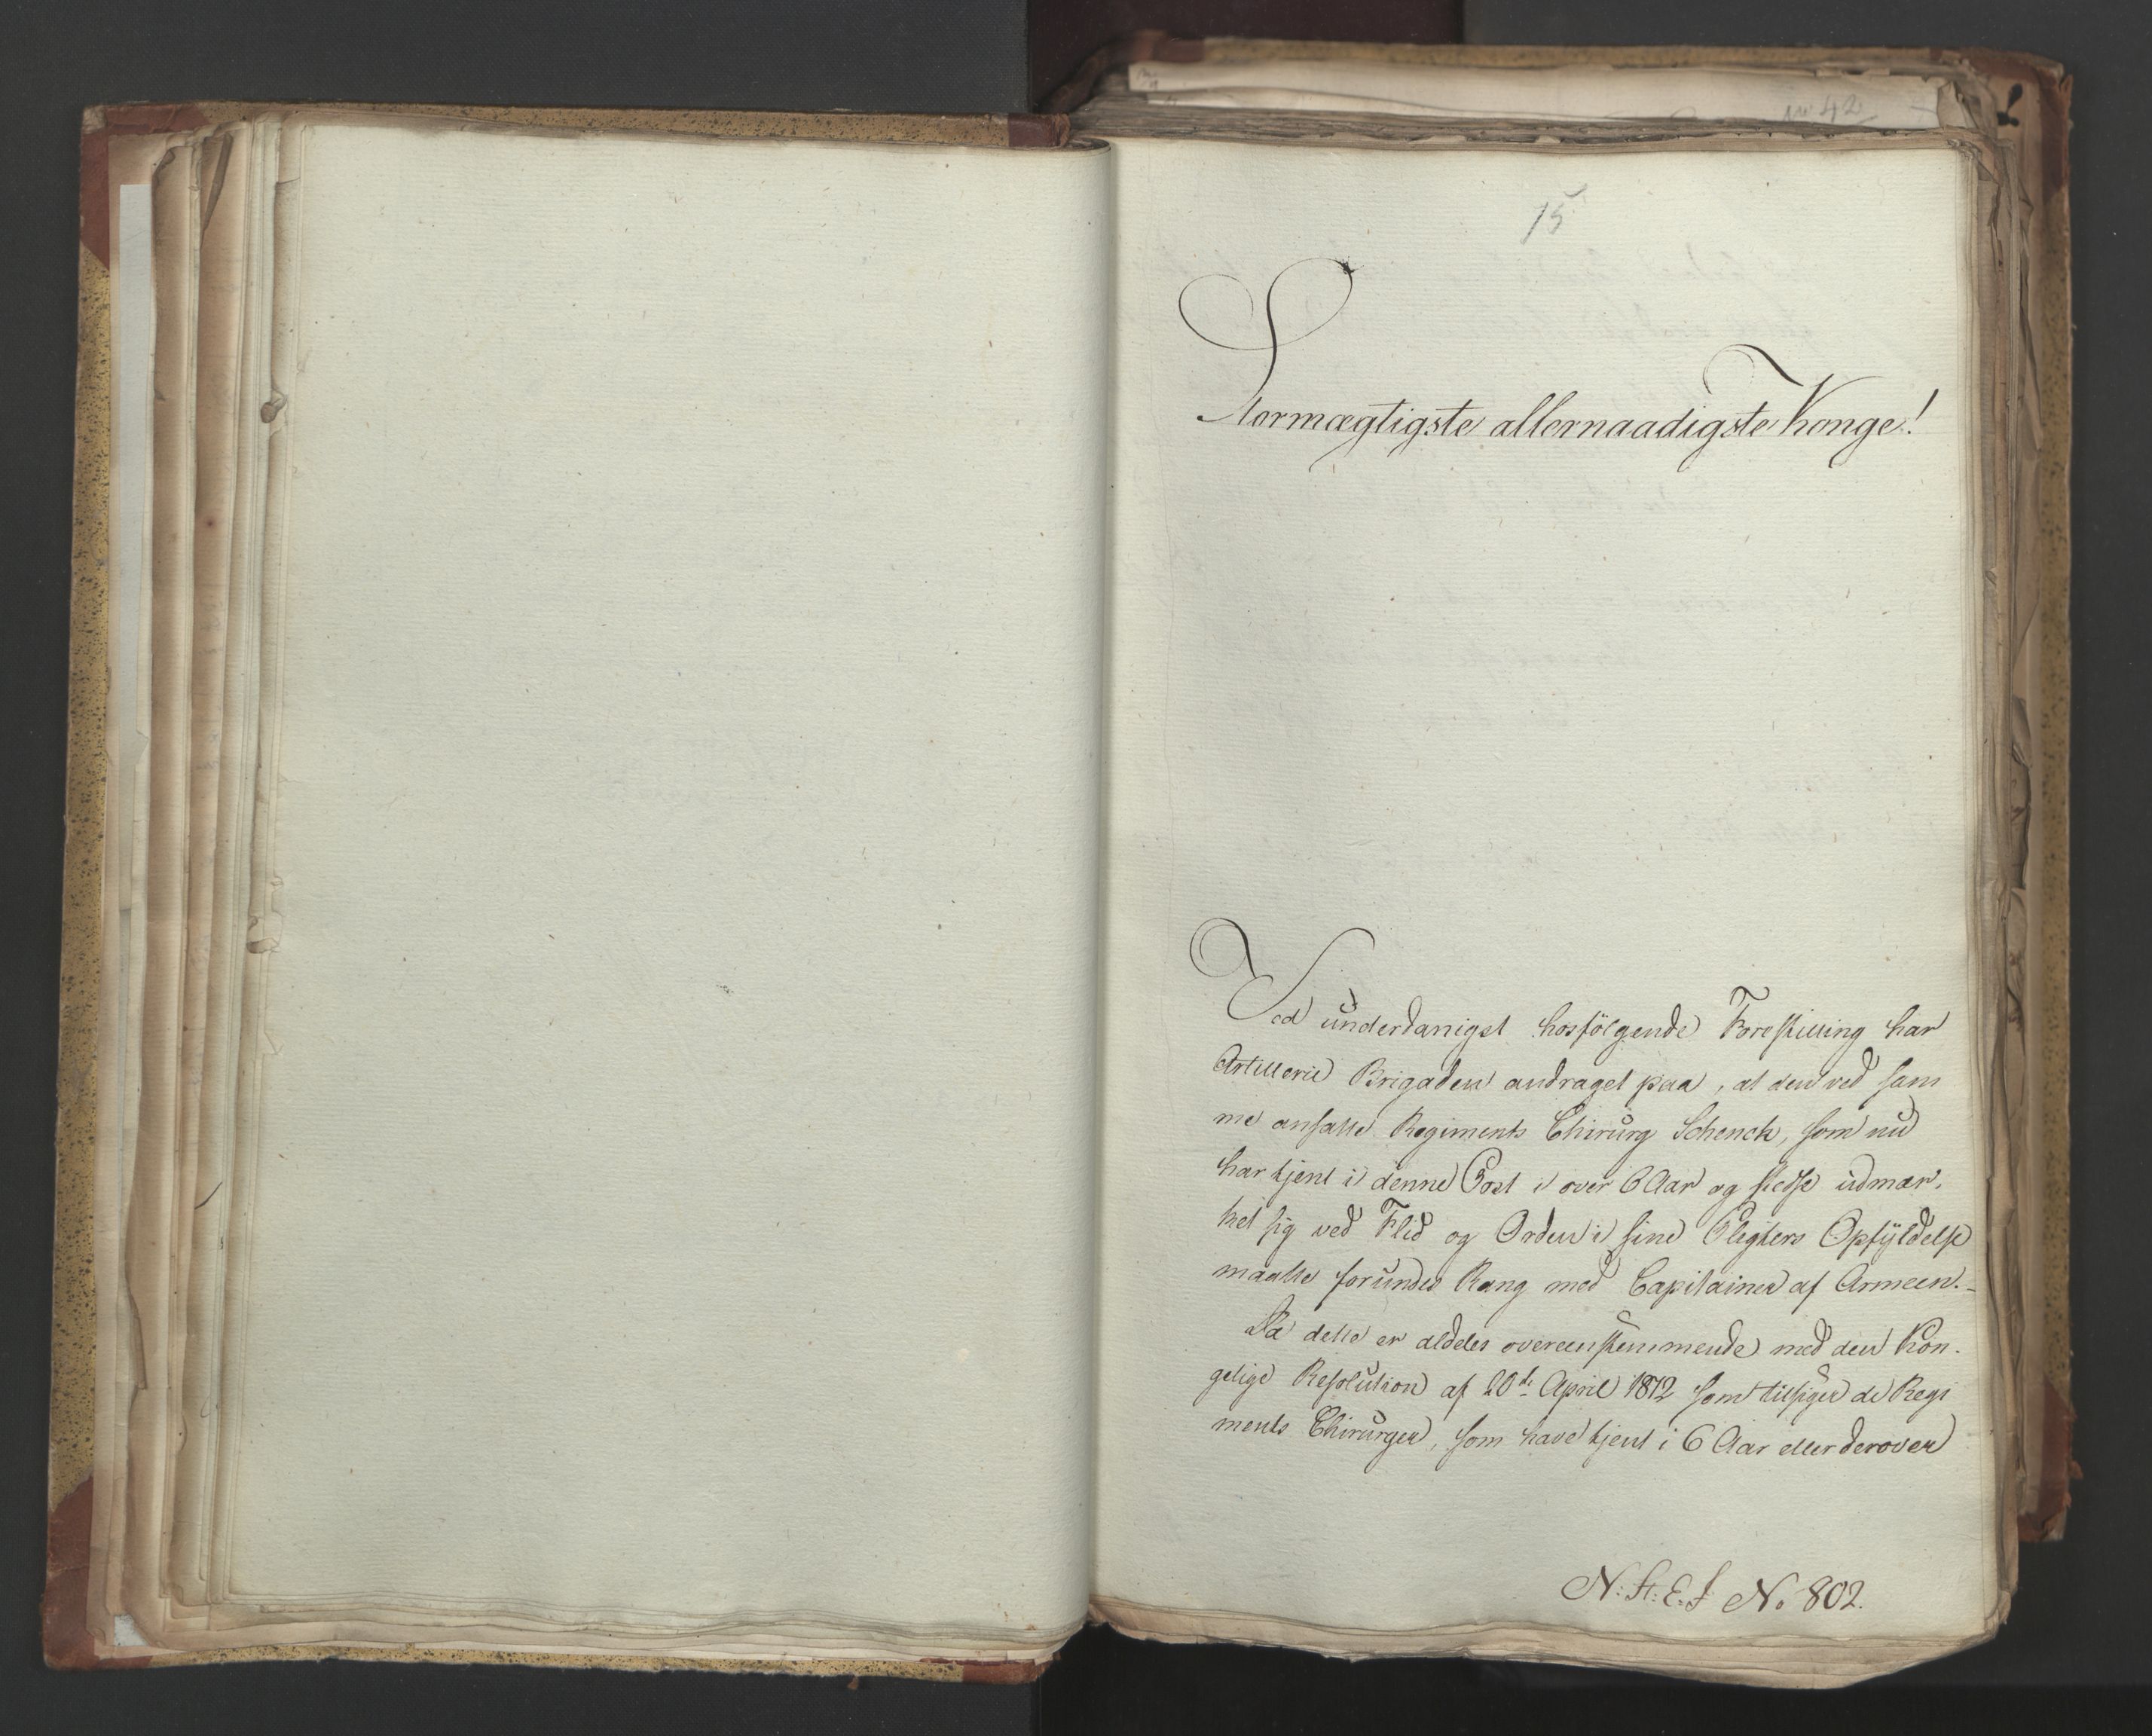 No 42
15
Stormægtigste allernaadigste Konge!
Ved underdanigst hosfölgende Forestilling har
Artillerie Brigaden andraget paa, at den ved sam
me ansatte Regiments Chirurg Schenck, som nu
har tjent i denne Post i over 6 Aar og stedse udmær-
ket sig ved Flid og Orden i sine Pligters Opfyldelse
maatte forundes Rang med Capitainer af Armeen.-
Da dette er aldeles overeenstemmende med den Kon-
gelige Resolution af 20de April 1812 som tilsiger de Regi
ments Chirurger, som have tjent i 6 Aar eller derover
N: St: E. J No 802.